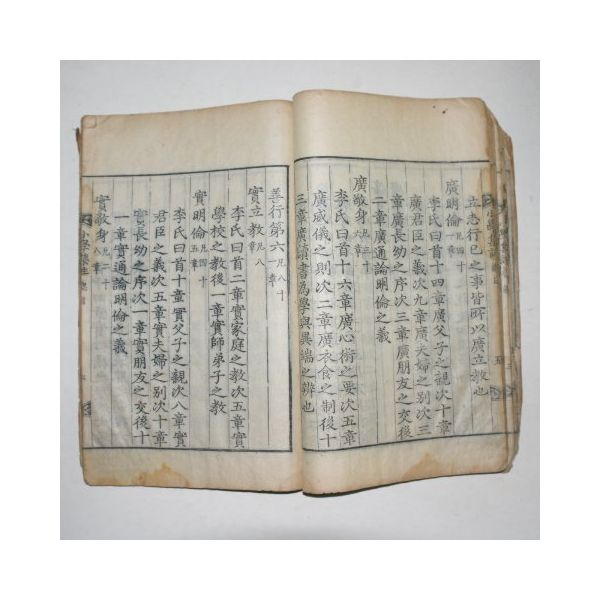 立志行己之事皆所以廣立教也
廣明倫凡四十一章
李氏曰首十四章廣父子之親次十章
廣君臣之義次九章廣夫婦之別次三
章廣長幼之序次三章廣朋友之交後
二章廣通論明倫之義
廣敬身
李氏曰首十六章廣心術之要次五章
廣威儀之則次二章廣衣食之制後十
三章廣讀書為學與異端之辨也
善行第六凡八十一章
實立教凡八章
李氏曰首二章實家庭之教次五章實
學校之教後一章實師弟子之教
實明倫凡四十五章
李氏曰首十章實父子之親次八章實
君臣之義次五章實夫婦之別次十章
實長幼之序次一章實朋友之交後十
一章實通論明倫之義
實敬身凡二十八章